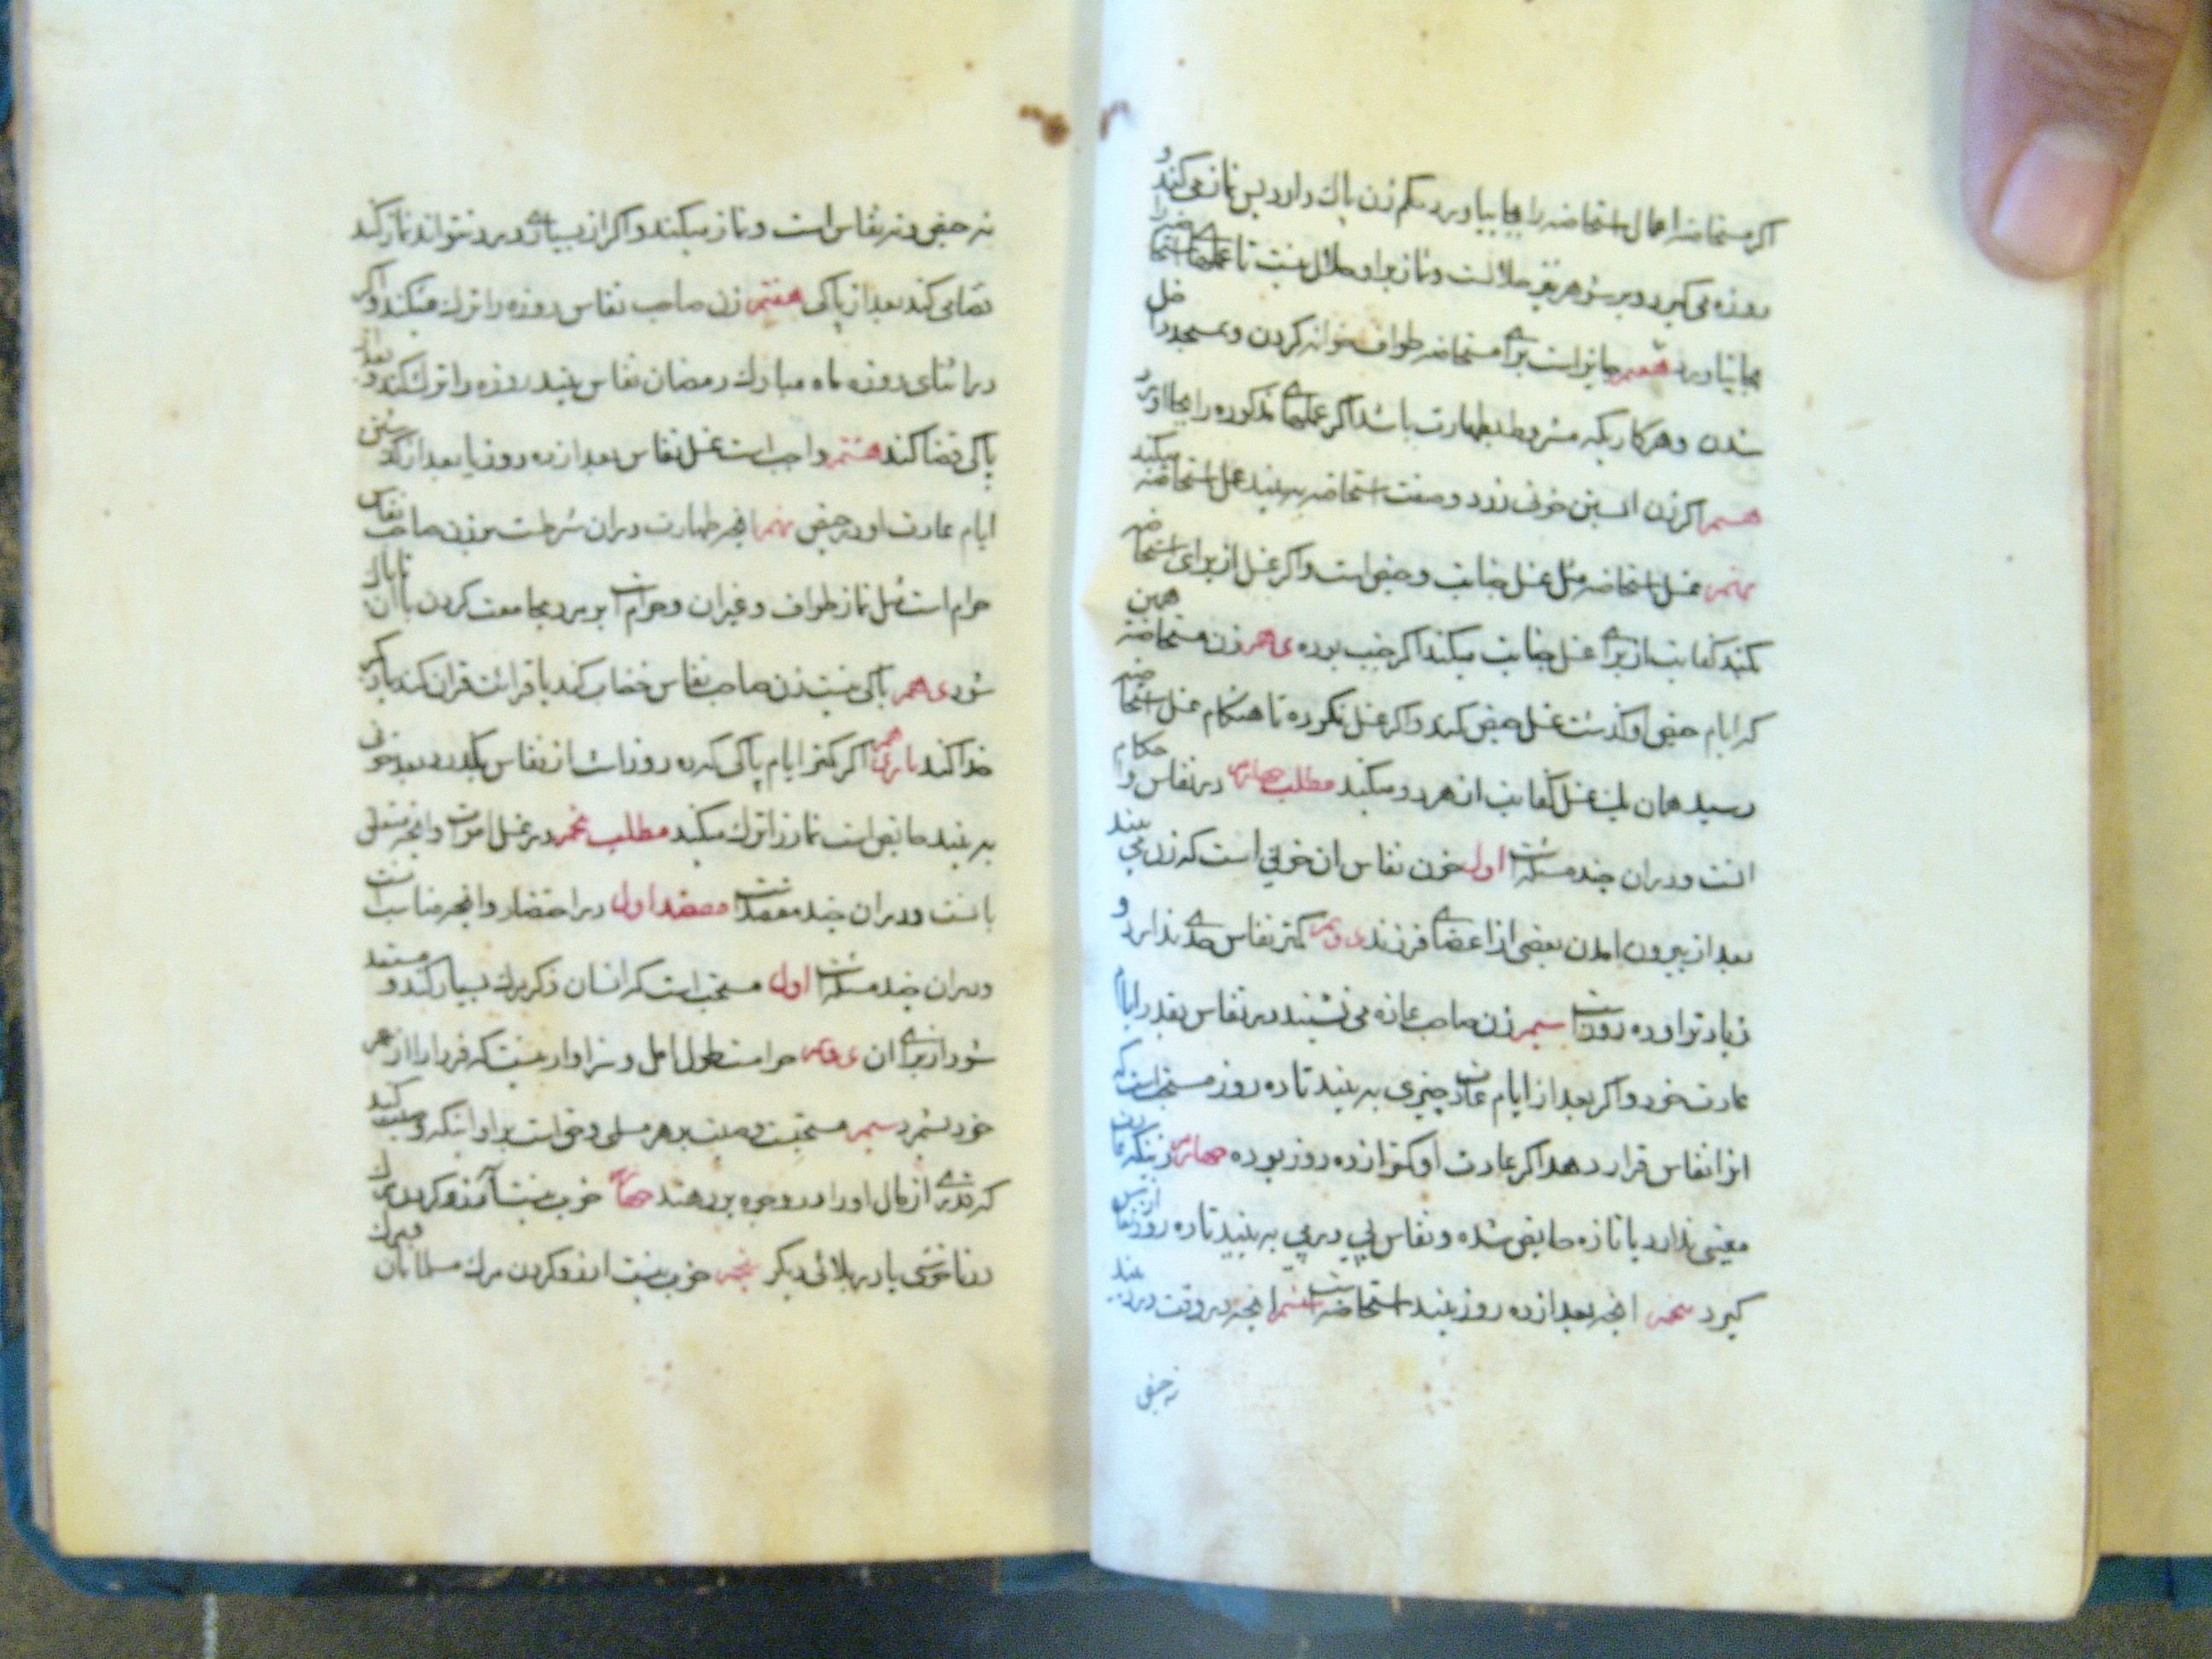 اکر مستحاضه اعمال استحاضه را بجا بیاورد بحکم زن پاك دارد پس نماز می کند و
روزه می کیرد و بر شوهر نیز حلالست و نماز برا و حلال نیست تا عملهای استحاضه را
بجا نیاورد هفتم جایز است برای مستحاضه طواف خوانه کردن و بمسجد داخل
شدن و هر کاریکه مشروط بطهارت باشد اکر عملهای مذکوره را بجا اورد
هشتم اکر زن ابستن خونی زرد و صفت استحاضه به بیند عمل استحاضه میکند
نهم غسل استحاضه مثل غسل جنابت و حیض است و اکر غسل از برای استحاضه
بکند کفایت از برای غسل جنابت میکند اکر جنب بوده دهم زن مستحاضه همین
که ایام حیض او کذشت غسل حیض کند و اکر غسل نکرده تا هنکام غسل استحاضه
رسید همان یك غسل کفایت از هر دو میکند مطلب چهارم در نفاس و احکام
انست و در ان چند مسئله است اول خون نفاس ان خونی است که زن می بیند
بعد از بیرون امدن بعضی از اعضای فرزند دویم کمتر نفاس حدی ندارد و
زیادتر او ده روز است سیم زن صاحب عاده می نشیند در نفاس بقدر ایام
عادت خود و اکر بعد از ایام عادت چیزی به بیند تا ده روز مستحب است که
انرا نفاس قرار دهد اکر عادت او کمتر از ده روز بوده چهارم زنیکه عادت
معینی ندارد یا تازه حایض شده و نفاس پی در پی به بیند تا ده روز نفاس
کیرد پنجم انچه بعد از ده روز بیند استحاضه است ششم انچه در وقت درد بیند
نه حیض
نه حیض و نه نفاس است و نماز میکند و اکر از بسیاری درد نتواند نماز کند
قضا می کند بعد از پاکی هفتم زن صاحب نفاس روزه را ترك میکند و اکر
در اثنای روزه ماه مبارك رمضان نفاس بیند روزه را ترك کند و بعد از
پاکی قضا کند هشتم واجب است غسل نفاس بعد از ده روز یا بعد از کذشتن
ایام عادت او در حیض نهم انچه طهارت در ان شرطست بر زن صاحب نفاس
حرام است مثل نماز طواف و غیر ان و حرام است بر مرد مجامعت کردن با ان تا پاك
شود دهم باکی نیست زن صاحب نفاس خضاب کند یا قرائت قران کند یا ذکر
خدا کند یازدهم اکر کمتر ایام پاکی که ده روز است از نفاس بکذرد بعد خونی
به بیند حایض است نماز را ترك میکند مطلب پنجم در غسل اموات و انچه متعلق
بانست و در ان چند مقصد است مقصد اول در احتضار و انچه مناسبت
و در ان چند مسئله است اول مستحب است که انسان ذکر مرك بسیار کند و مستعد
شود از برای ان دویم حرامست طول امل و سزاوار نیست که فردا را از عمر
خود شمرد سیم مستحبست وصیت بر هر مسلمی و حق است برا و اینکه وصیت کند
که قدری از مال او را در وجوه بر دهند چهارم خوب نیست آرزو کردن مرك
در ناخوشی یا در بلائی دیکر پنجم خوب نیست ارزو کردن مرك مسلمانان